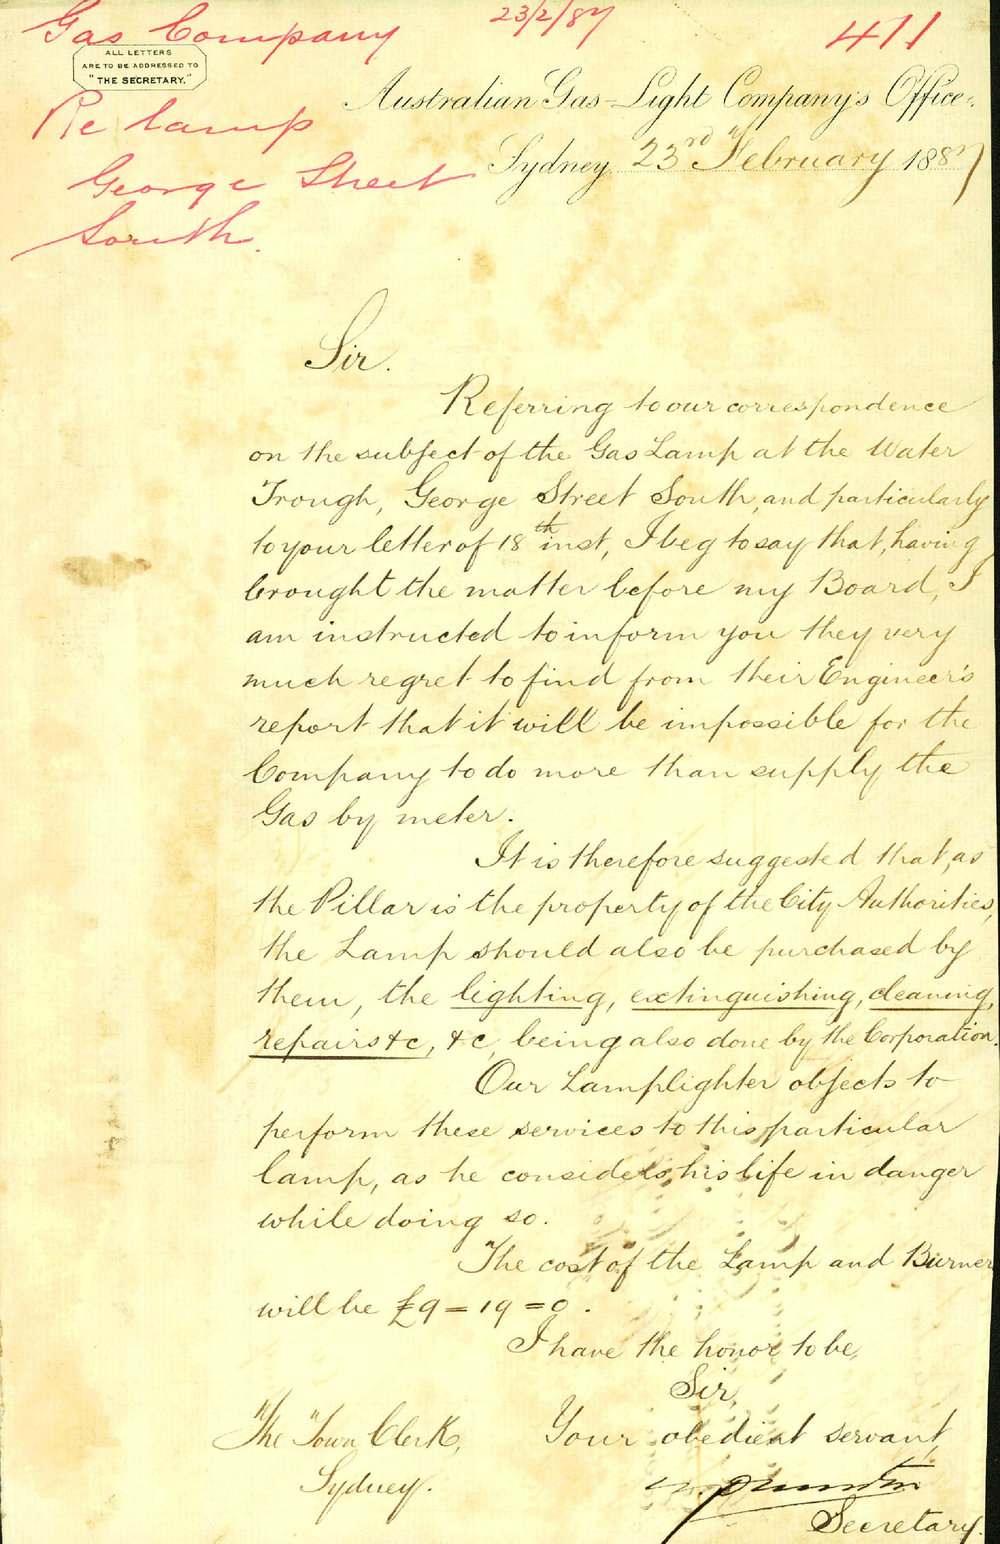 Gas Company
23/2/87
411
ALL LETTERS
ARE TO BE ADDRESSED TO
"THE SECRETARY."
Re lamp
George Street
South.
Australian Gas-Light Company's Office.
Sydney 23rd February 1887
Sir.
Referring to our correspondence
on the subject of the Gas Lamp at the Water
Trough, George Street South, and particularly
to your letter of 18th inst, I beg to say that, having
brought the matter before my Board, I
am instructed to inform you they very
much regret to find from their Engineer's
report that it will be impossible for the
Company to do more than supply the
Gas by meter.
It is therefore suggested that, as
the Pillar is the property of the City Authorities,
the Lamp should also be purchased by
them, the lighting, extinguishing, cleaning,
repairs &c, &c, being also done by the Corporation.
Our Lamplighter objects to
perform these services to this particular
lamp, as he considers his life in danger
while doing so.
The cost of the Lamp and Burner
will be £9=19=0.
I have the honor to be,
Sir,
Your obedient servant,
The Town Clerk,
Sydney.
Secretary.